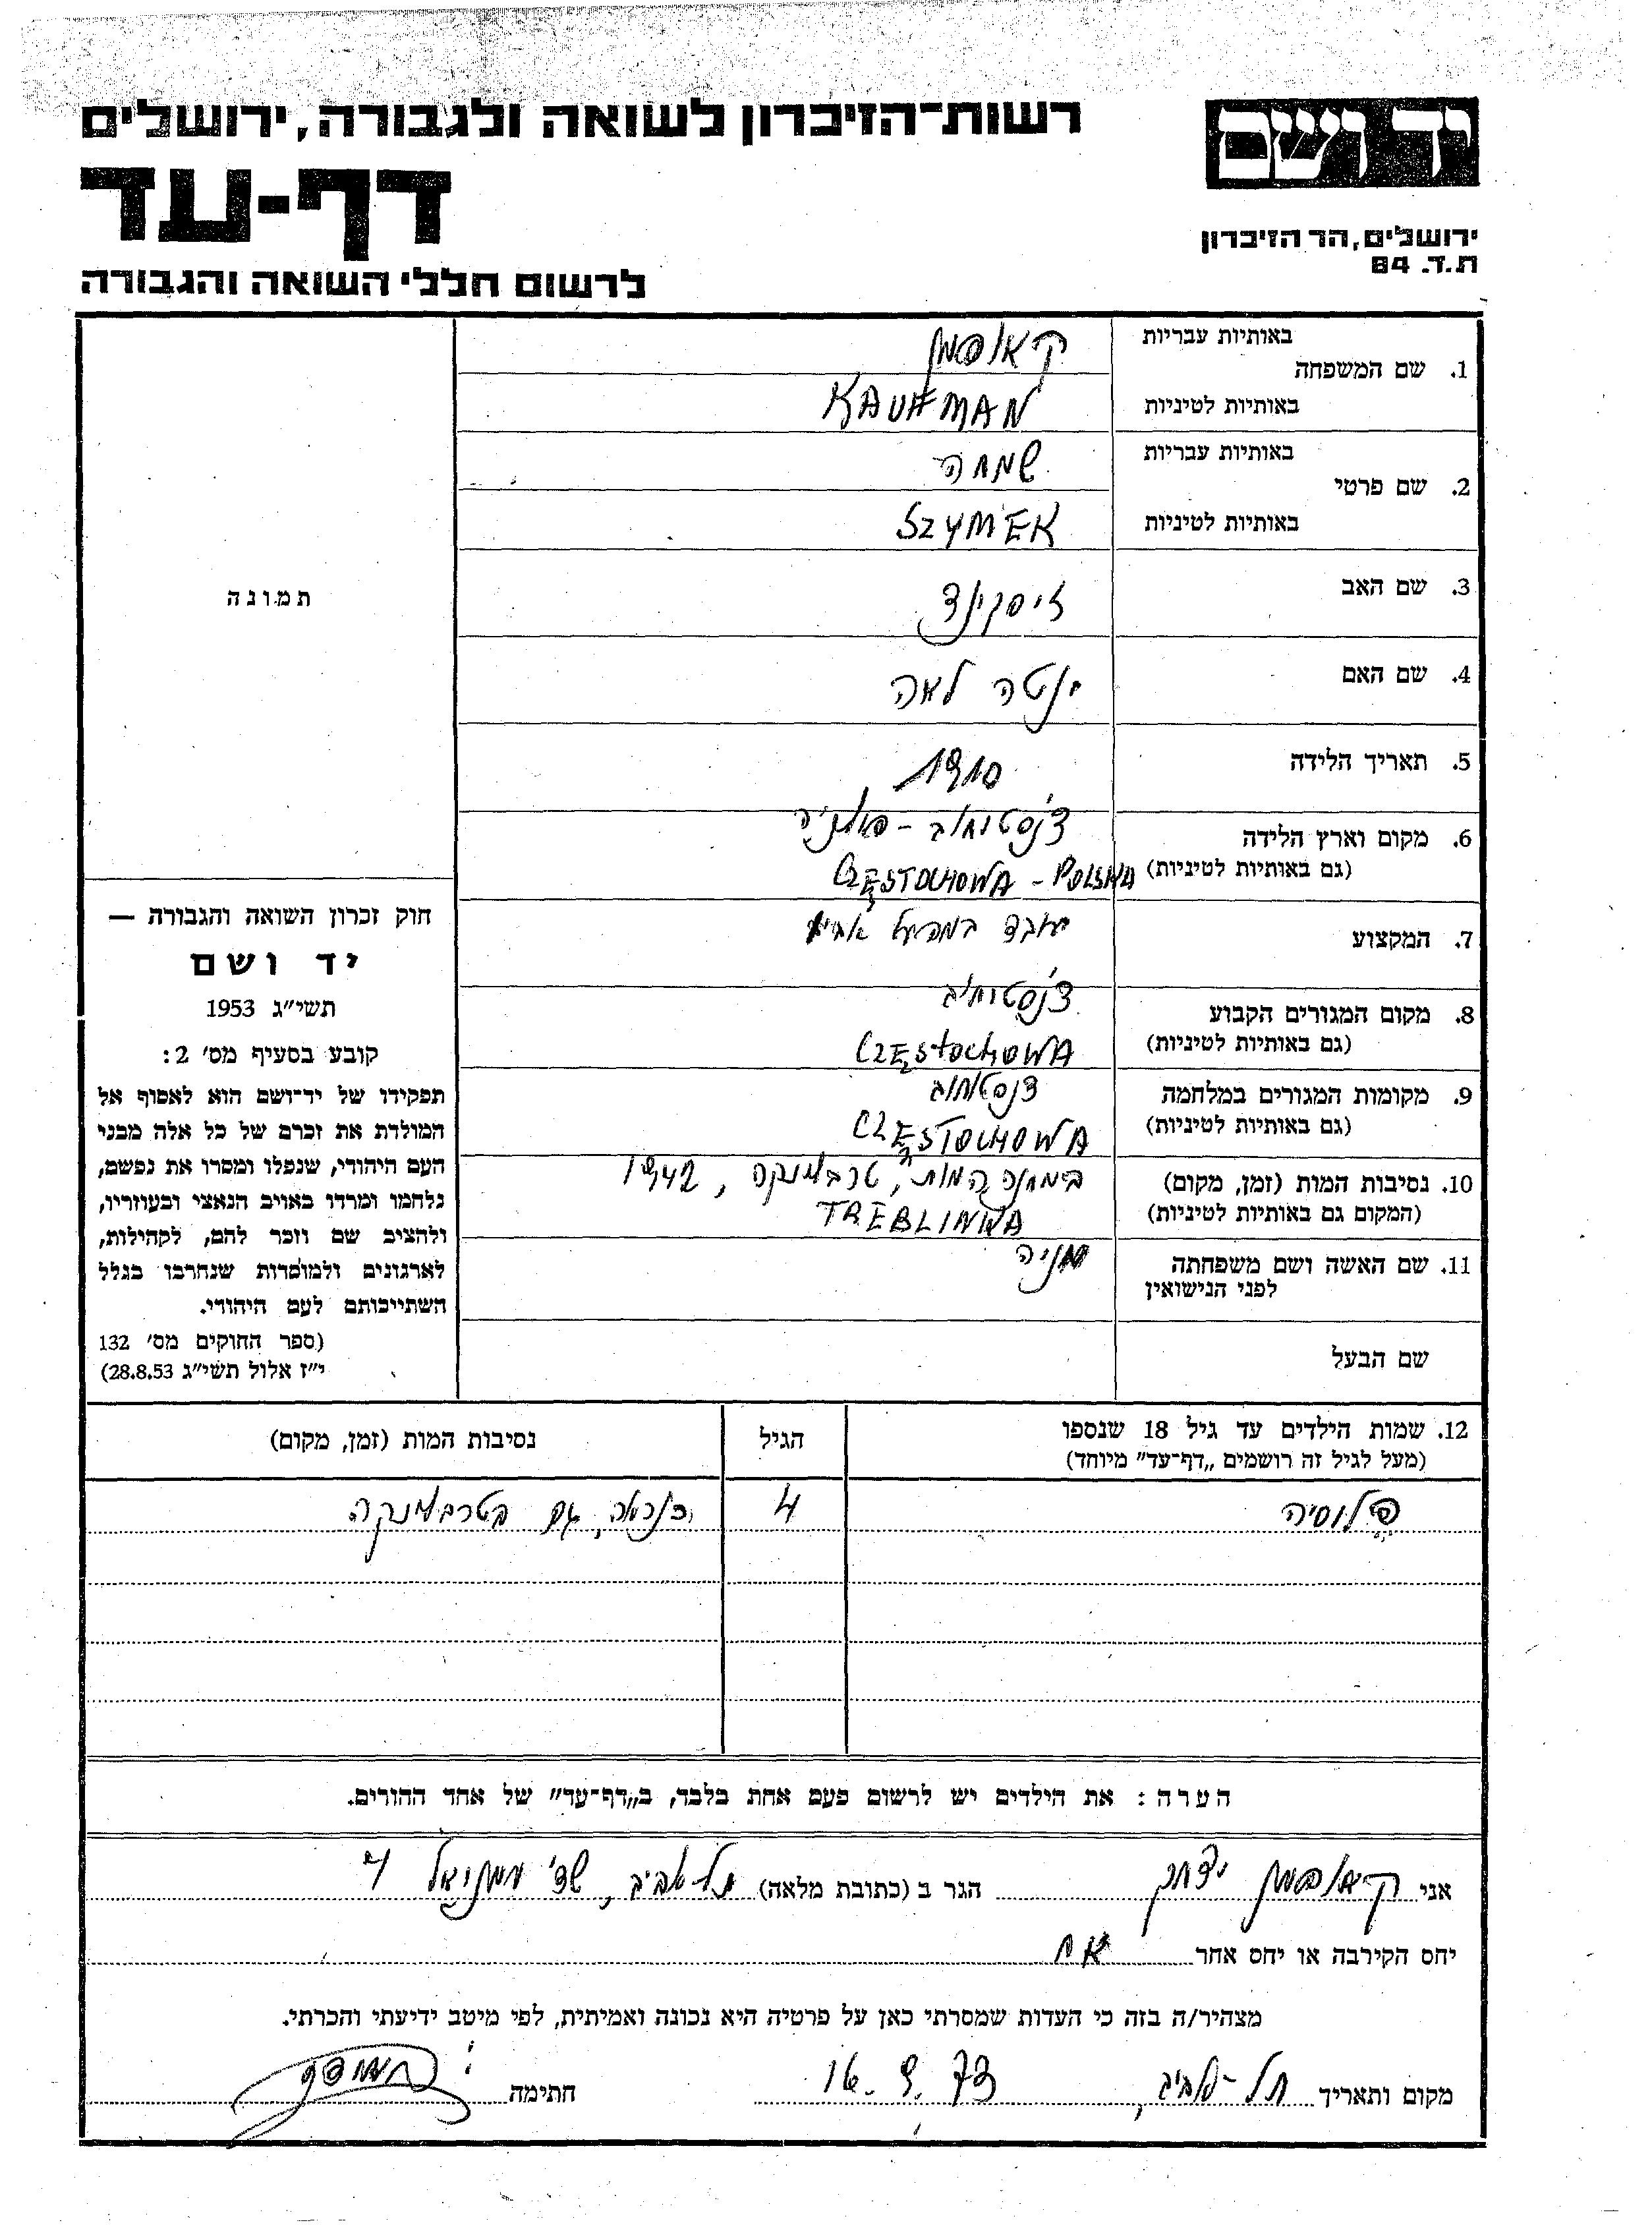 רשות־הזיכרון לשואה ולגבורה, ירושלים
יד ושם
דף-עד
ירושלים, הר הזיכרון
ת.ד. 84
לרשום חללי השואה והגבורה
באותיות עבריות
קאופמן
1. שם המשפחה
באותיות לטיניות
KAUFMAN
באותיות עבריות
שמחה
2. שם פרטי
באותיות לטיניות
SZYMEK
3. שם האב
זיסקינד
4. שם האם
ינטה לאה
5. תאריך הלידה
1910
6. מקום וארץ הלידה
(גם באותיות לטיניות)
צ'נסטוחוב - פולניה
CZĘSTOCHOWA - POLSKA
7. המקצוע
עובד במפעל
8. מקום המגורים הקבוע
(גם באותיות לטיניות)
צ'נסטוחוב
CZĘSTOCHOWA
9. מקומות המגורים במלחמה
(גם באותיות לטיניות)
צנסטוחוב
CZĘSTOCHOWA
10. נסיבות המות (זמן, מקום)
(המקום גם באותיות לטיניות)
במחנה המות, טרבלינקה, 1942
TREBLINKA
11. שם האשה ושם משפחתה
לפני הנישואין
מניה
שם הבעל
תמונה
חוק זכרון השואה והגבורה —
יד ושם
תשי״ג 1953
קובע בסעיף מס׳ 2:
תפקידו של יד־ושם הוא לאסוף אל
המולדת את זכרם של כל אלה מבני
העם היהודי, שנפלו ומסרו את נפשם,
נלחמו ומרדו באויב הנאצי ובעוזריו,
ולהציב שם וזכר להם, לקהילות,
לארגונים ולמוסדות שנחרבו בגלל
השתייכותם לעם היהודי.
(ספר החוקים מס׳ 132
י״ז אלול תשי״ג 28.8.53)
12. שמות הילדים עד גיל 18 שנספו
(מעל לגיל זה רושמים „דף־עד״ מיוחד)
הגיל
נסיבות המות (זמן, מקום)
לוסיה
4
כנראה, גם בטרבלינקה
הערה: את הילדים יש לרשום פעם אחת בלבד, ב„דף־עד״ של אחד ההורים.
אני קאופמן יצחק הגר ב (כתובת מלאה) תל אביב, שד' עמנואל 4
יחס הקירבה או יחס אחר אח
מצהיר/ה בזה כי העדות שמסרתי כאן על פרטיה היא נכונה ואמיתית, לפי מיטב ידיעתי והכרתי.
מקום ותאריך תל-אביב, 16.9.73 חתימה